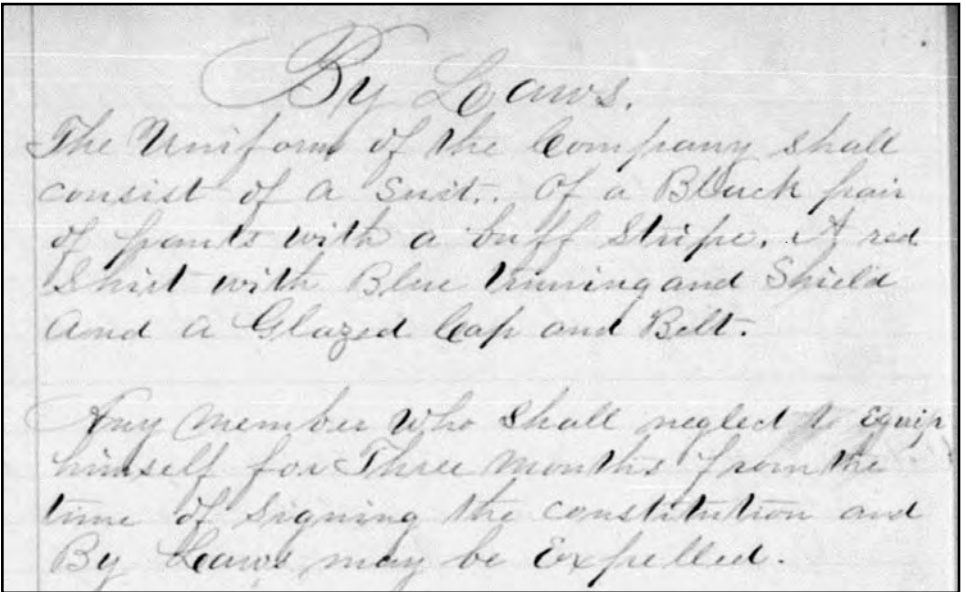 By Laws.
The Uniform of the Company shall
consist of a Suit.. Of a Black pair
of pants with a buff Stripe. A red
Shirt with Blue triming and Shield
And a Glazed Cap and Belt.
Any Member Who Shall neglect to Equip
himself for Three Months from the
time of Signing the Constitution and
By Laws may be Expelled.